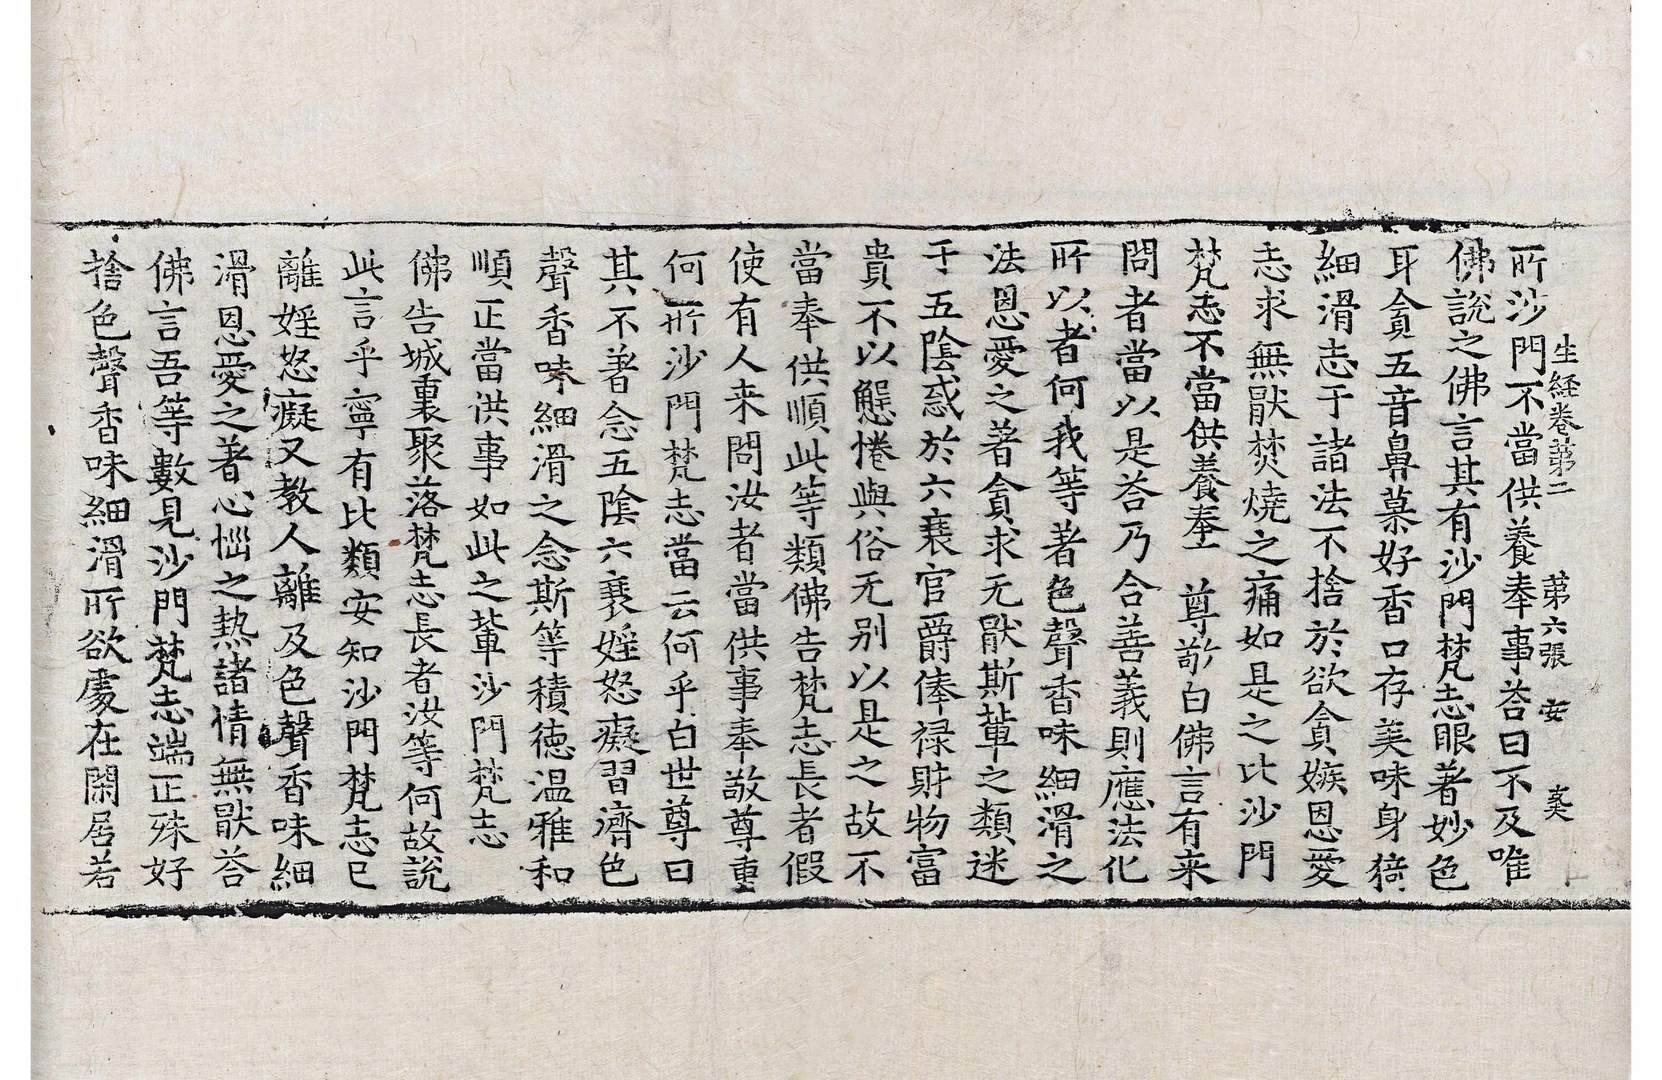 生経卷第二　第六張　安　奕
所沙門不當供養奉事荅曰不及唯
佛說之佛言其有沙門梵志眼著妙色
耳貪五音鼻慕好香口存美味身猗
細滑志于諸法不捨於欲貪嫉恩愛
志求無猒焚燒之痛如是之比沙門
梵志不當供養奉　尊敬白佛言有来
問者當以是荅乃合善義則應法化
所以者何我等著色聲香味細滑之
法恩愛之著貪求无猒斯輩之類迷
于五陰惑於六衰官爵俸禄財物富
貴不以懸惓與俗无别以是之故不
當奉供順此等類佛告梵志長者假
使有人来問汝者當供事奉敬尊重
何所沙門梵志當云何乎白世尊曰
其不著念五陰六衰婬怒癡習濟色
聲香味細滑之念斯等積徳温雅和
順正當供事如此之輩沙門梵志
佛告城裏聚落梵志長者汝等何故說
此言乎寧有比類安知沙門梵志已
離婬怒癡又教人離及色聲香味細
滑恩愛之著心惱之熱諸情無猒荅
佛言吾等數見沙門梵志端正殊好
捨色聲香味細滑所欲處在閑居若